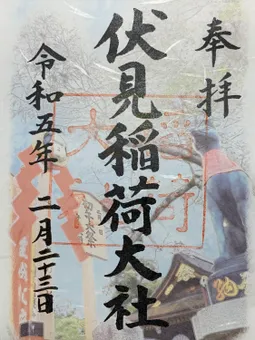 奉拝
伏見稲荷大社
令和五年 二月二十三日